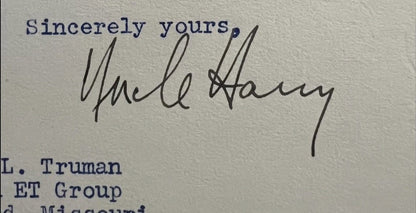 Sincerely yours,
Uncle Harry
L. Truman
ET Group
d, Missouri